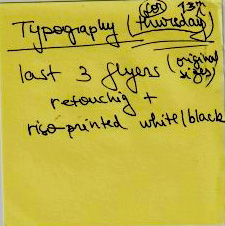 Typography (for thursday 13th)
last 3 flyers (original sizes)
retouchig +
riso-printed white/black